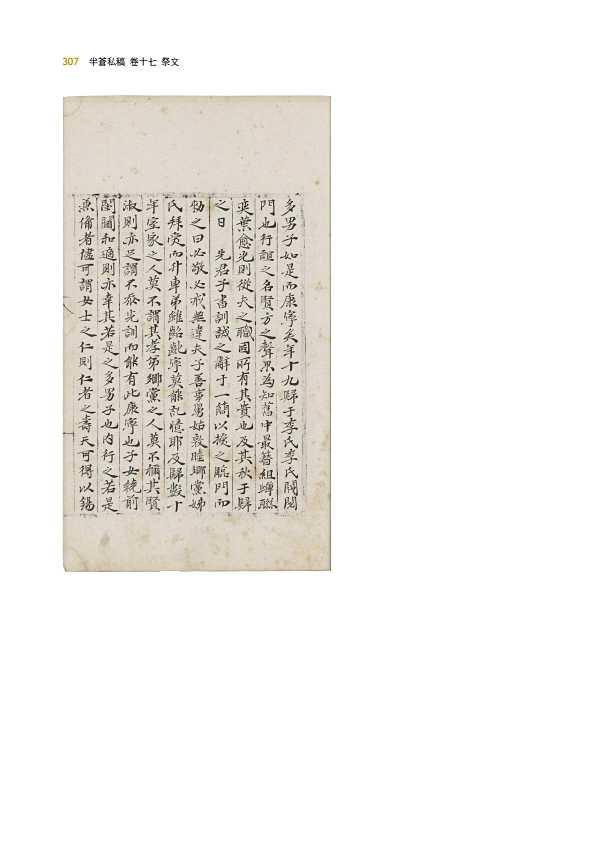 307 半蒼私稿 卷十七 祭文
多男子如是而康寧矣年十九歸于李氏李氏閥閱
門也行誼之名賢方之聲累為知舊中最簪組蟬聯
奕葉愈光則從夫之職固所有其貴也及其秋于歸
之日 先君子書訓誡之辭于一簡以授之臨門而
勑之曰必敬必戒無違夫子善事舅姑敦睦鄉黨娣
氏拜受而升車弟雖齠齔寧莫能記憶耶及歸數十
年室家之人莫不謂其孝弟鄉黨之人莫不稱其賢
淑則亦足謂不忝先訓而能有此康寧也子女繞前
閨闥和適則亦幸其若是之多男子也內行之若是
無備者儘可謂女士之仁則仁者之壽天可得以錫